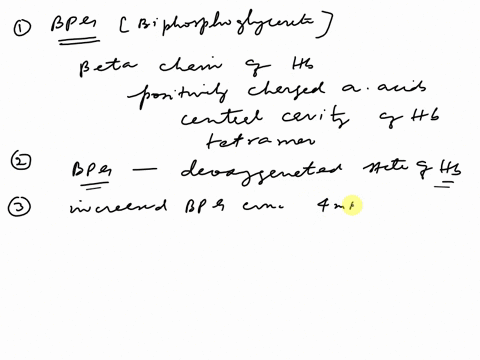 ① BPG [Biphosphoglycerate]
Beta chain of Hb
positively charged a. acids
central cavity of Hb
tetramer
② BPG — deoxygenated state of Hb
③ increased BPG conc 4 m